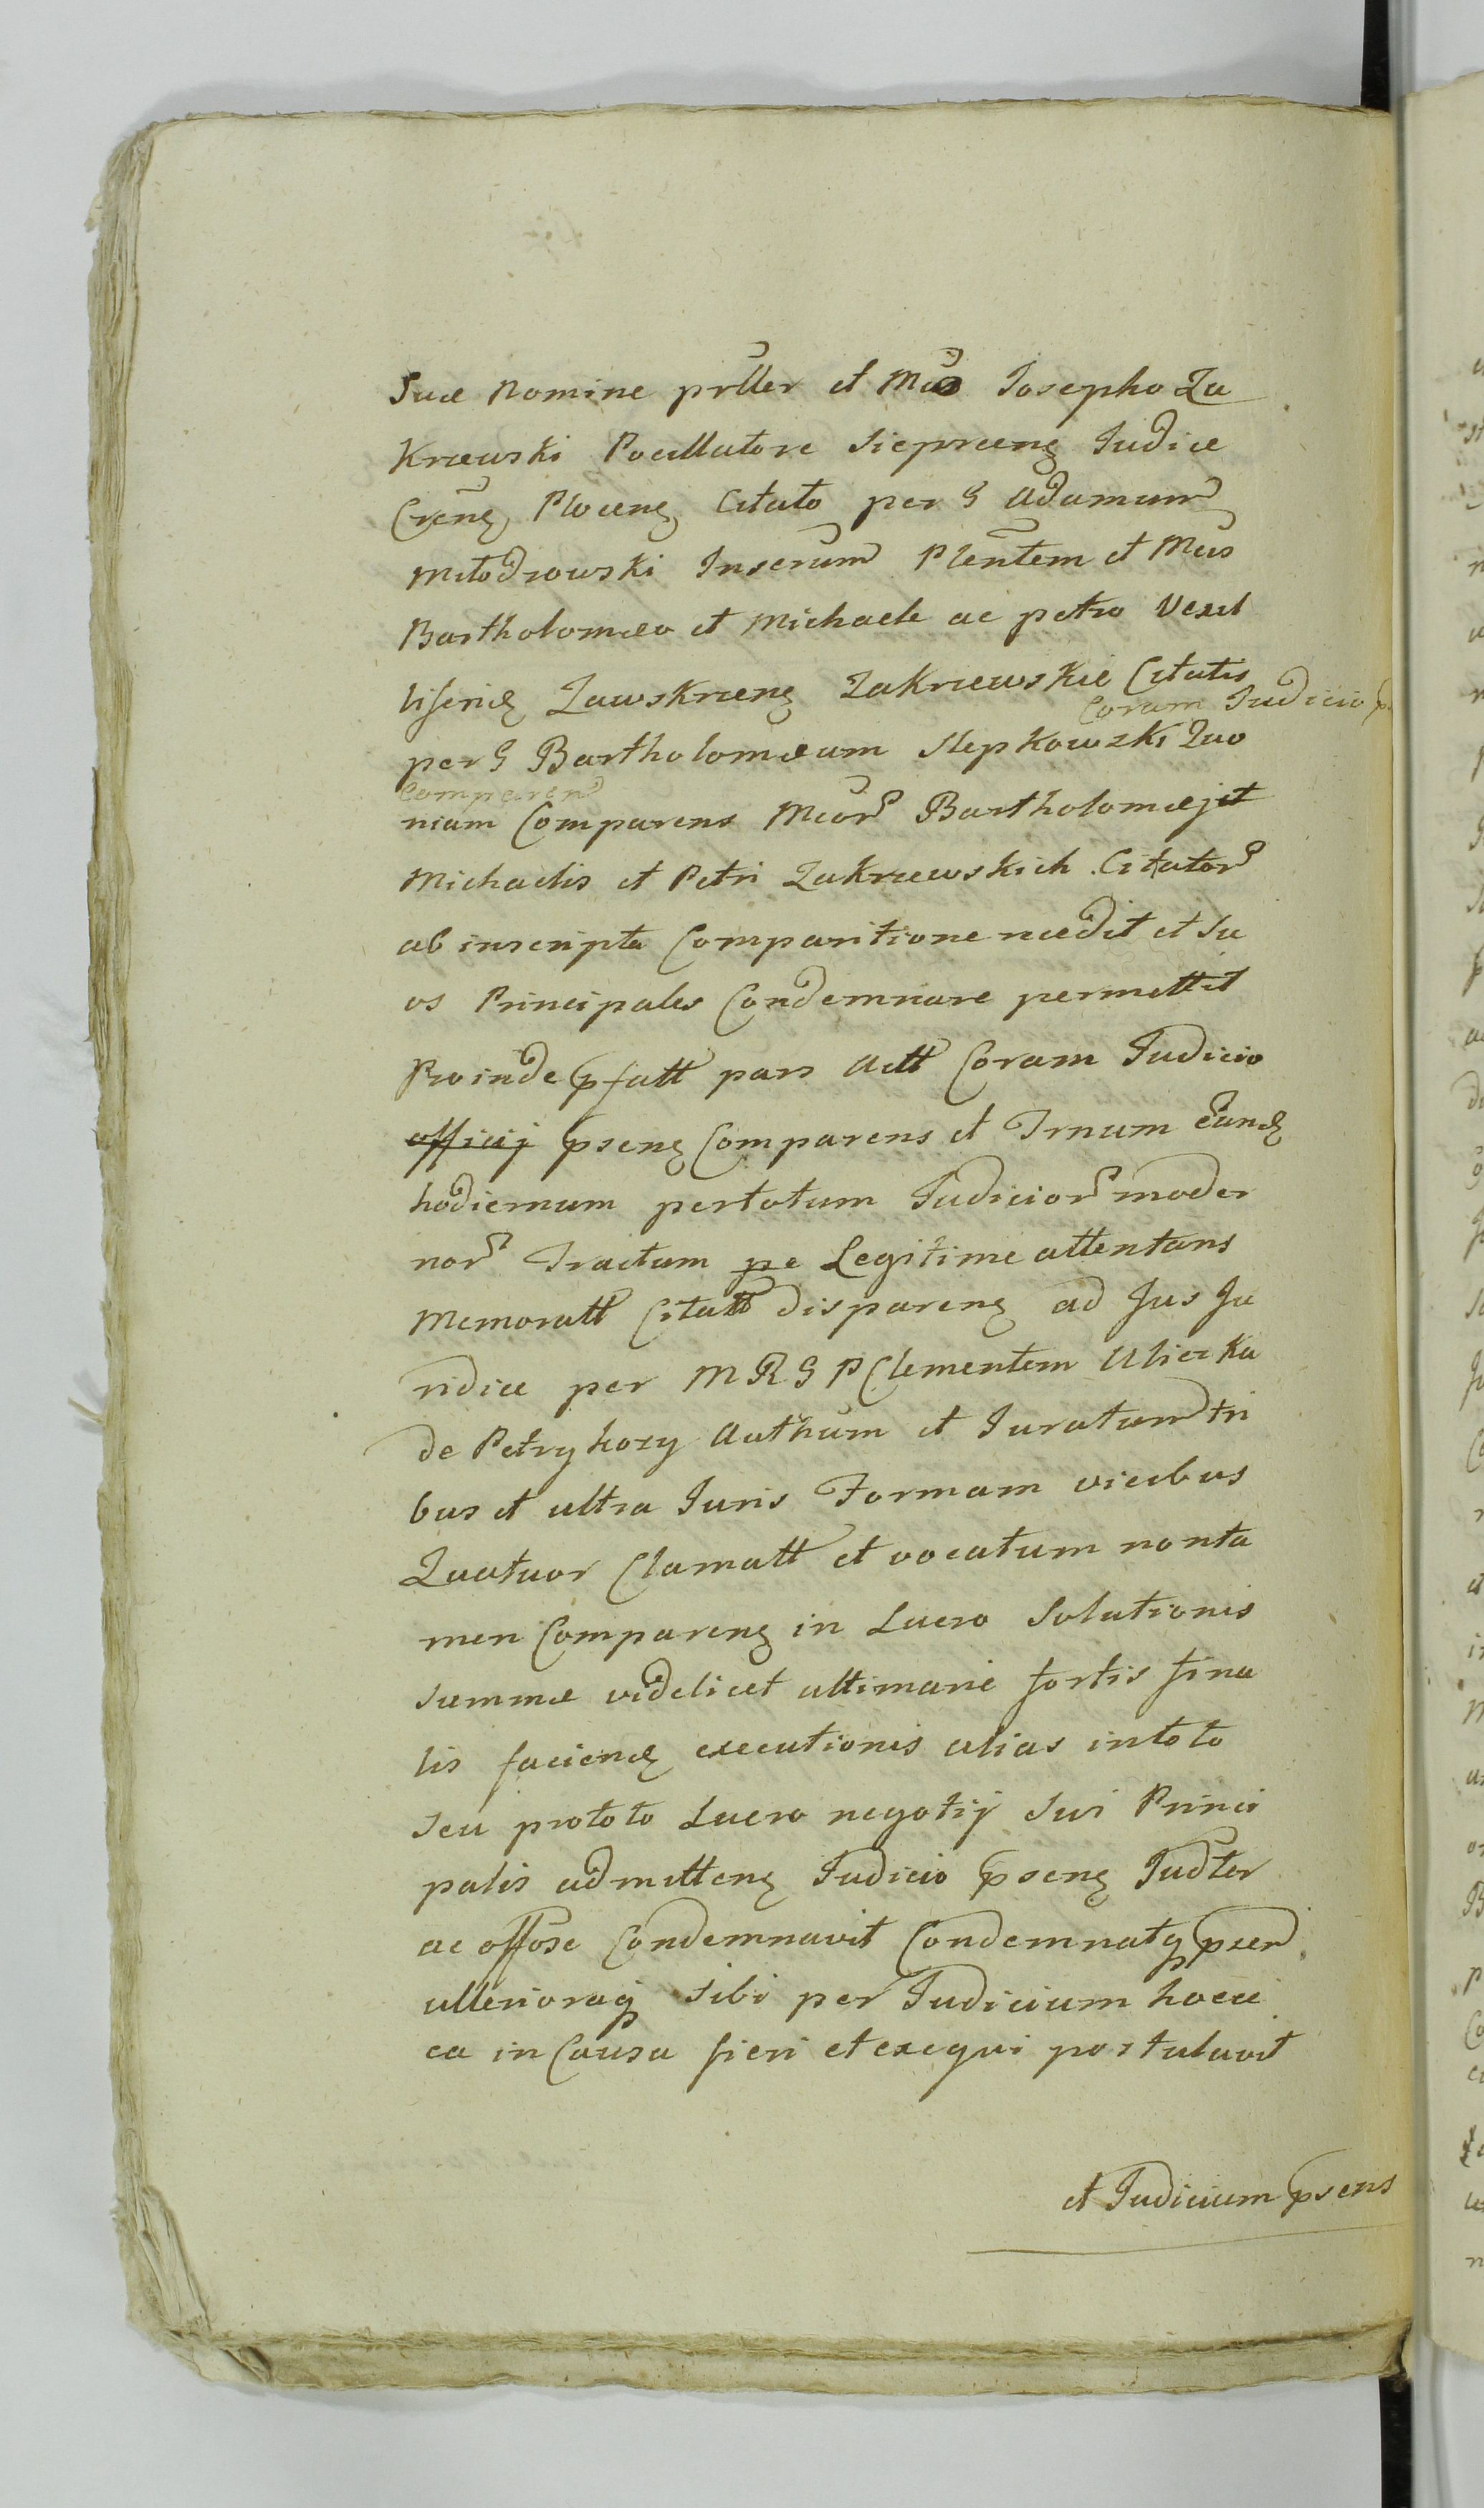 Suæ Nomine prller et Mco Josepho Za
Krzewski Pocillatore Sieprceng Judice
Creng Ploceng Citato per G Adamum
Młodzowski Inscrum Plentem et Mcis
Bartholomæo et Michaele ac petro Vexil
liferid Zawskrzeng Zakrzewskie Citatis
Coram Judicio
per G Bartholomæum Slepkowski Quo
Comparen
niam Comparens Mcor Bartholomæj et
Michaelis et Petri Zakrzewskich Citator
ab inscripta Comparitione recedit et Su
os Principales Condemnare permittit
Proinde pfatt pars Actt Coram Judicio
officij pseng Comparens et Trnum eund
hodiernum pertotum Judicior moder
nor Tractum pe Legitime attentans
Memoratt Citatt dispareng ad Jus Ju
ridice per M R G P Clementem Ulicz Ka
de Petrykozy Authum et Juratum tri
bus et ultra Juris Formam vicibus
Quatuor Clamatt et vocatum non ta
men Compareng in Lucro Solutionis
summæ videlicet ultimarie fortis fina
lis faciend executionis alias in toto
seu pro toto Lucro negotij Sui Princi
palis admitteng Judicio pseng Judter
ac offose Condemnavit Condemnatq
ulterioraq sibi per Judicium hocce
ea in Causa fieri et exequi postulavit
et Judicium psens